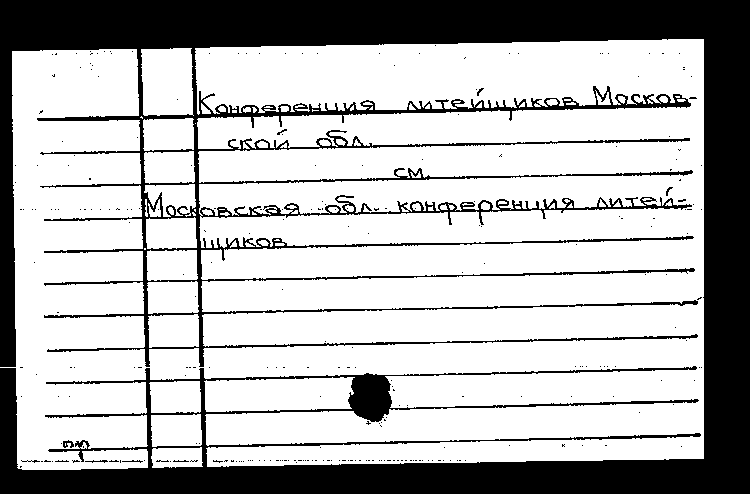 Конференция литейщиков Москов-
ской обл.
см.
Московская обл. конференция литей-
щиков